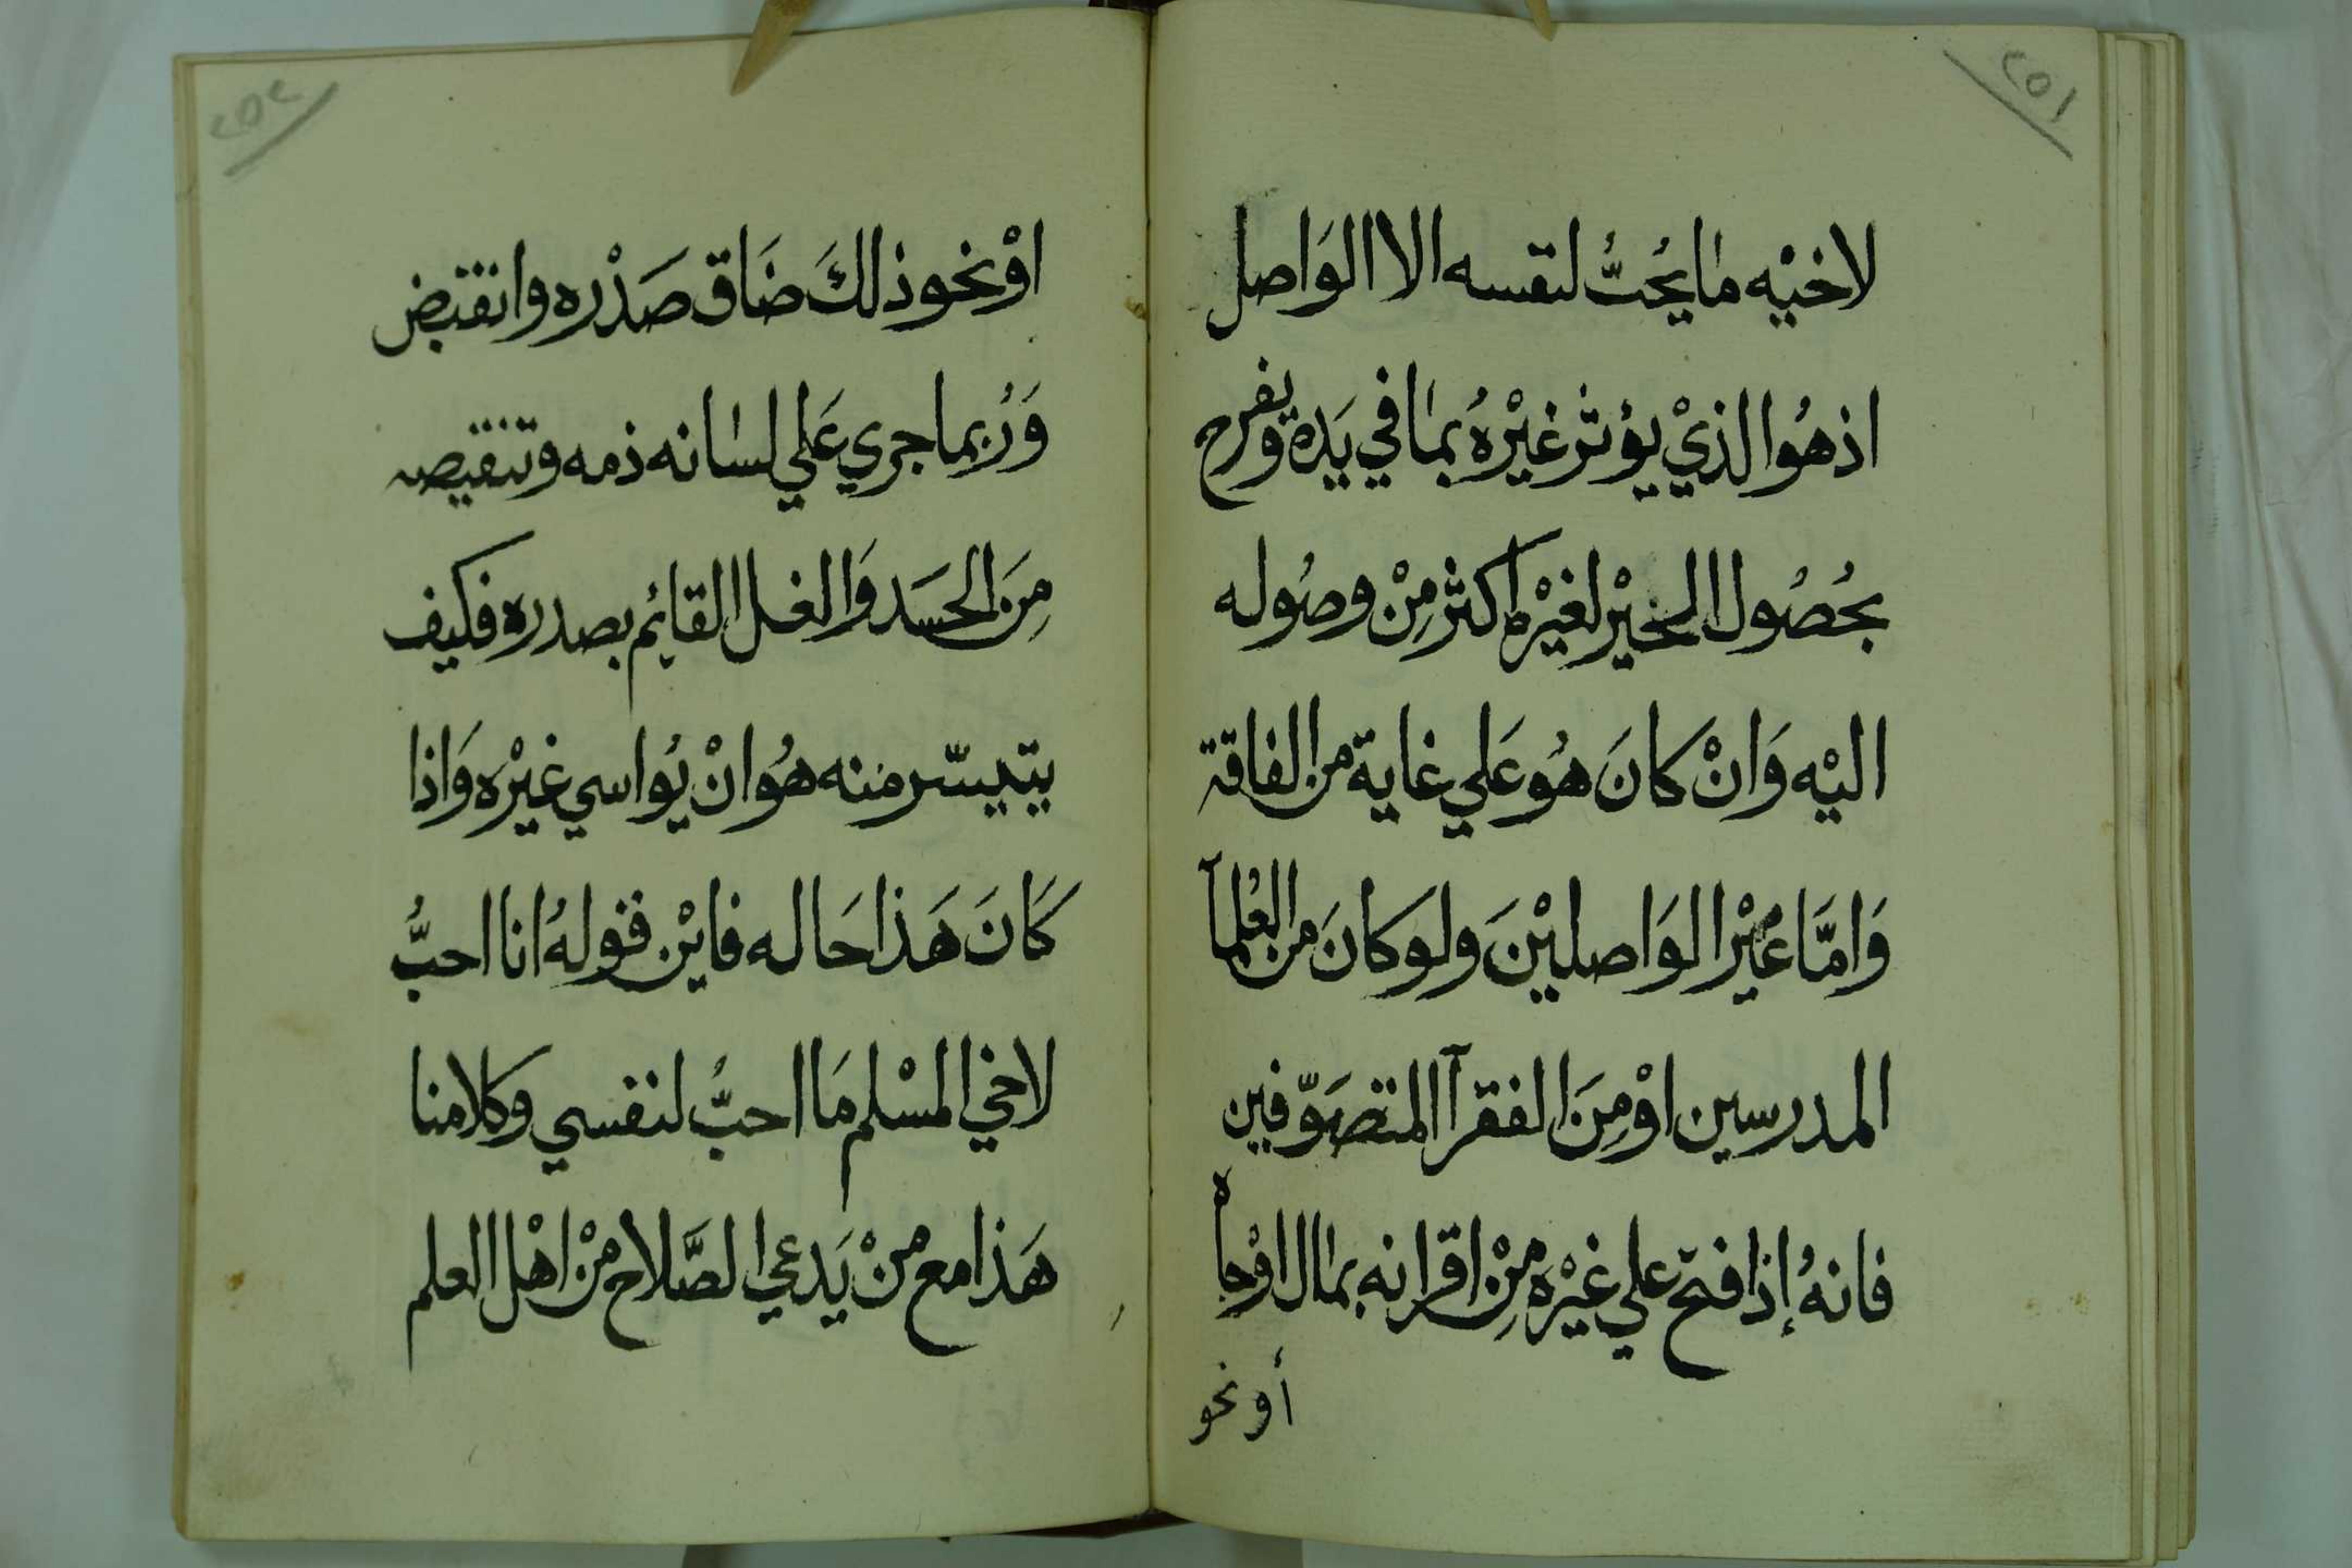 ٢٥١
لاخيْه ما يُحبُّ لنفسه الا الوَاصل
اذ هُوا لذيْ يؤثر غيْرهُ بما في يَده ويفرح
بحُصُول الخيْر لغيْره اكثر مِنْ وصُوله
اليْه وَانْ كانَ هُو عَلي غاية من الفاقة
وَامَّا غيْر الوَاصليْنَ ولو كانَ من العُلمآ
المدرسين اوْ مِنَ الفقرآ المتصَوّفين
فانهُ إذا فتح علي غيْره مِنْ اقرانه بمال اوْ جاه
أو نحو
٢٥٢
اوْ نحو ذالكَ ضَاق صَدْره وانقبض
وَرُبما جري عَلي لسانه ذمه وتنقيصه
مِنَ الحسَد وَالغل القائم بصدره فكيف
يتيسّر منه هُو انْ يُواسي غيْره وَاذا
كَانَ هَذا حَاله فايْن قولهُ انا احبُّ
لاخي المسْلم مَا احبُّ لنفسي وكلامنا
هَذا مع منْ يَدعي الصَّلاح منْ اهْل العلم